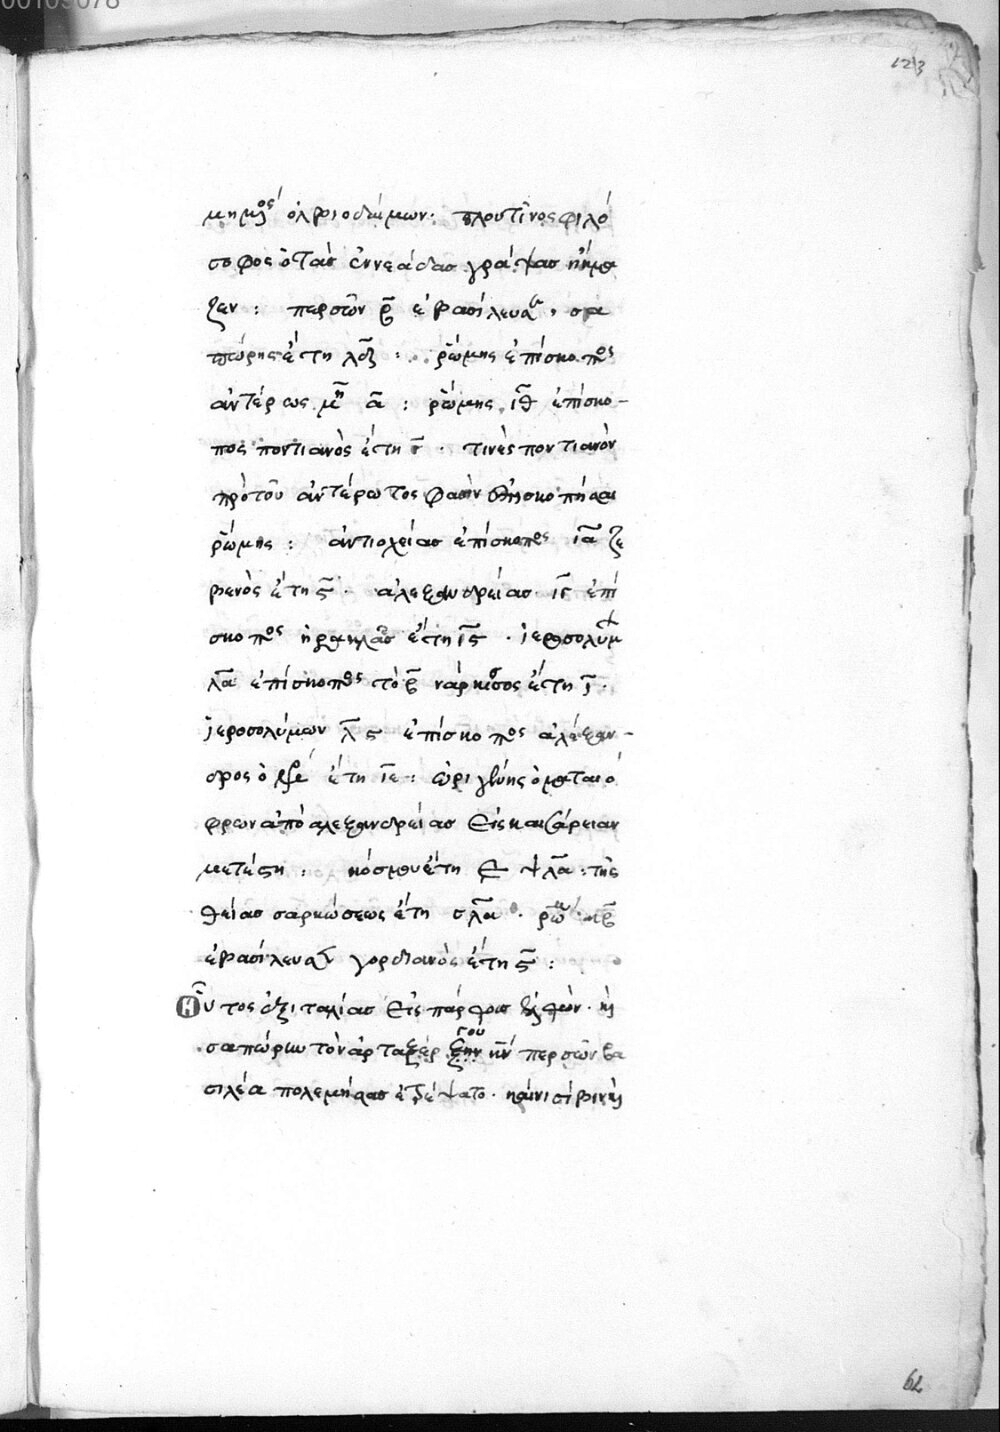 00109078
123
σοφος ὁ τὰς ἐννεάδας γράψας ἤκμα
ζεν : περσῶν β̅ ἐβασίλευσ , σα
πώρης ἔτη λ̅α̅ : ῥώμης ἐπίσκοπος
ἀντέρως μη α̅ : ῥώμης ι̅θ̅ ἐπίσκο-
πος ποντιανὸς ἔτη ϛ̅ . τινὲς ποντιανὸν
πρὸ τοῦ ἀντέρωτος φασὶν ἐπισκοπῆσαι
ῥώμης : ἀντιοχείας ἐπίσκοπος ι̅α̅ ζε
βενὸς ἔτη ϛ̅ . ἀλεξανδρείας ι̅γ̅ ἐπί
σκοπος ἡρακλᾶς ἔτη ι̅ϛ̅ . ἱεροσολύμ
λ̅α̅ ἐπίσκοπος τὸ β̅ νάρκισσος ἔτη ι̅ .
ἱεροσολύμων λ̅ϛ̅ ἐπίσκοπος ἀλέξαν-
δρος ἔτη ι̅ε̅ : ὠριγένης ὁ ματαιό
φρων ἀπὸ ἀλεξανδρείας εἰς καισάρειαν
μετέστη : κόσμου ἔτη ε̅ ψ̅λ̅α̅ : τῆς
θείας σαρκώσεως ἔτη σ̅λ̅α̅ . ῥω κ̅β̅
ἐβασίλευσ γορδιανὸς ἔτη ϛ̅ :
Οὗτος ἐξ ἰταλίας εἰς πάρθους ἐλθὼν . κ
σαπώρην τὸν ἀρταξέρξου υἱὸν περσῶν βα
σιλέα πολεμήσας ἐτρέψατο . καὶ νισίβιν κ
62